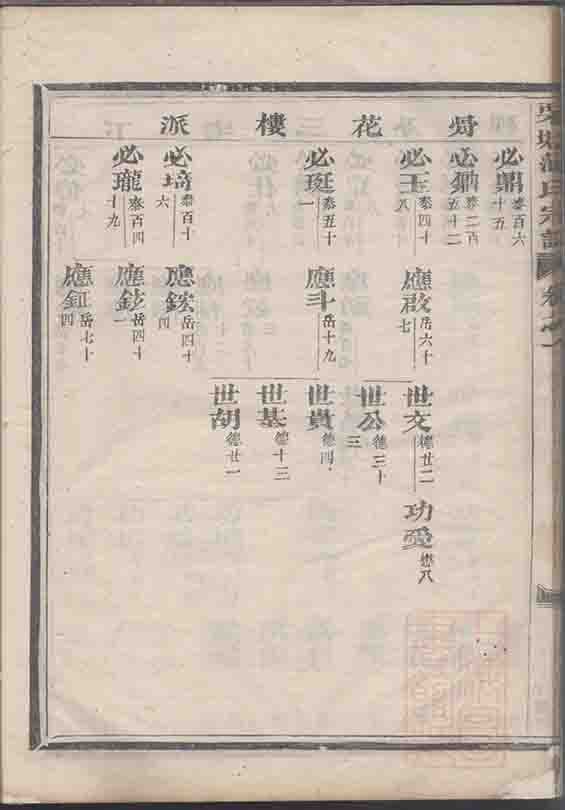 宗譜 卷之一
花樓派
必鼎 泰百六十五
必鼐 泰二百五十二
必玉 泰四十八
必珽 泰五十一
必埼 泰百十六
必瓏 泰百四十九
應啟 岳六十七
應斗 岳十九
應鈫 岳四十一
應釭 岳七十四
世交 德廿二
世公 德三十三
世貴 德四
世基 德十三
世胡 德廿一
功愛 懋八